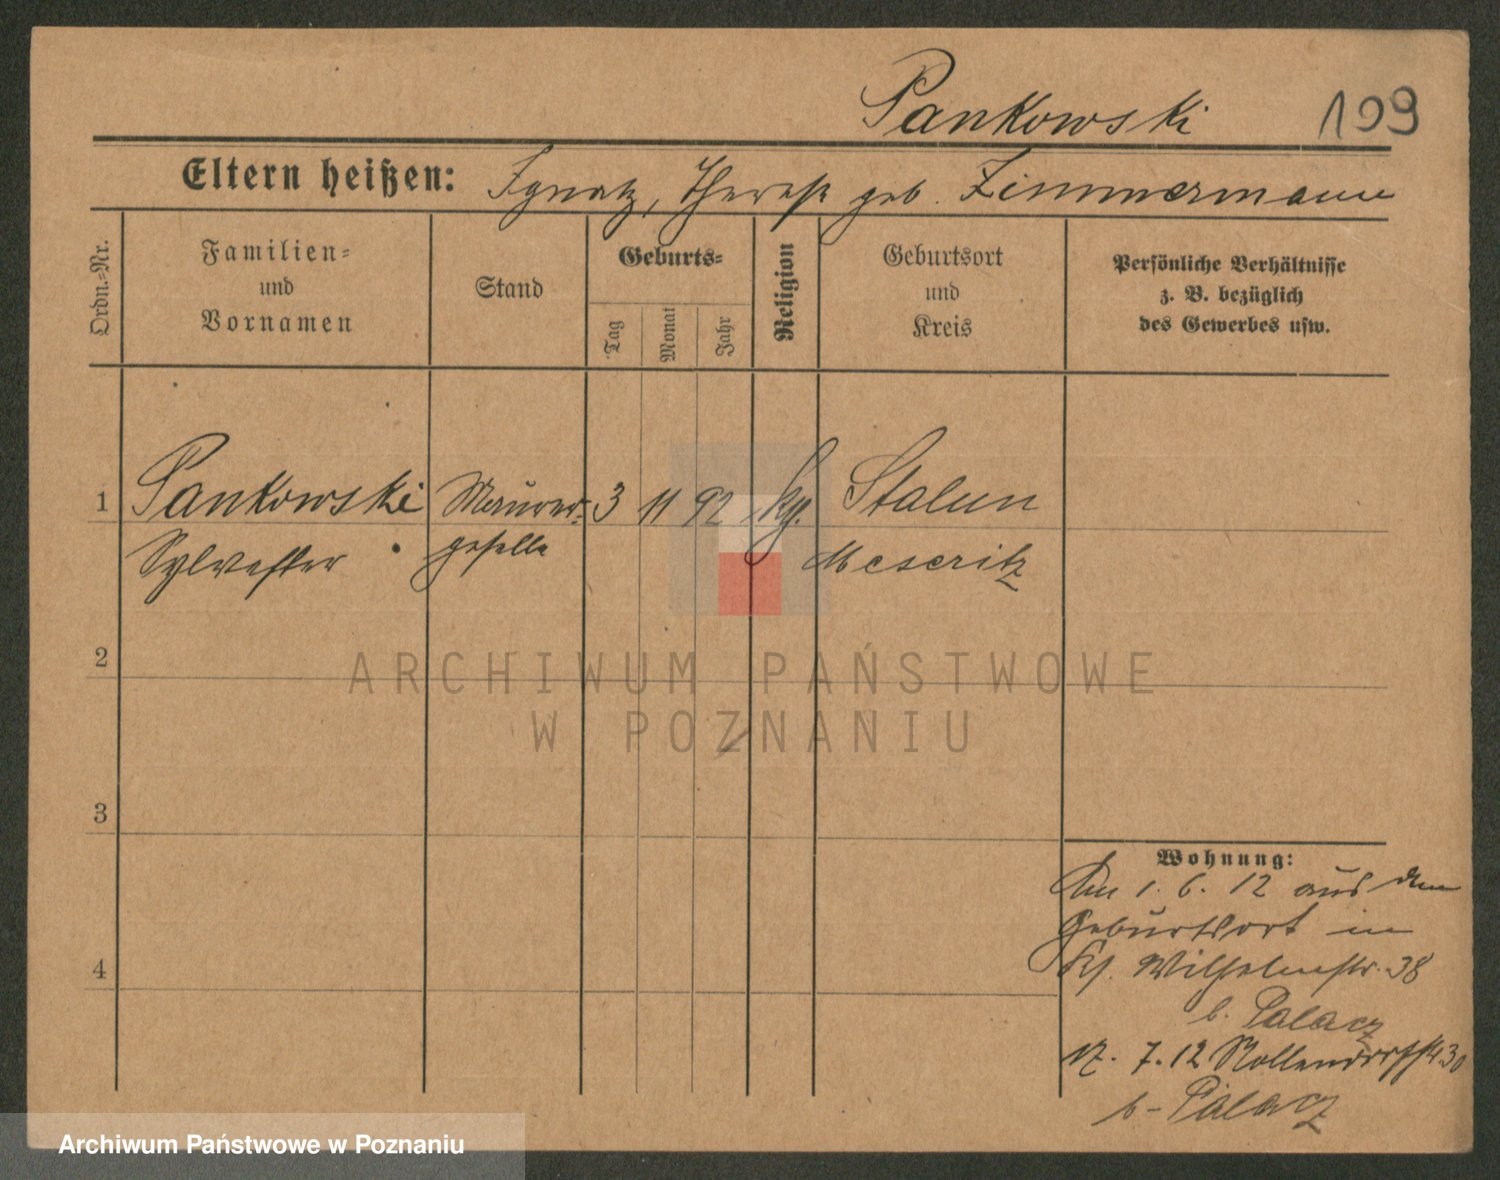 Pankowski 199
Eltern heißen: Ignatz, Therese geb. Zimmermann
Ordn.-Nr.
Familien-
und
Vornamen
Stand
Geburts-
Tag
Monat
Jahr
Religion
Geburtsort
und
Kreis
Persönliche Verhältnisse
z. B. bezüglich
des Gewerbes usw.
1 Pankowski Maurer- 3 11 92 kg. Stalun
Sylvester geselle Meseritz
2
ARCHIWUM PAŃSTWOWE
W POZNANIU
3
Wohnung:
Am 1. 6. 12 aus dem
Geburtsort in
4
Wilhelmstr. 38
b. Palacz
17. 7. 12 Nollendorfstr 30
b. Palacz
Archiwum Państwowe w Poznaniu